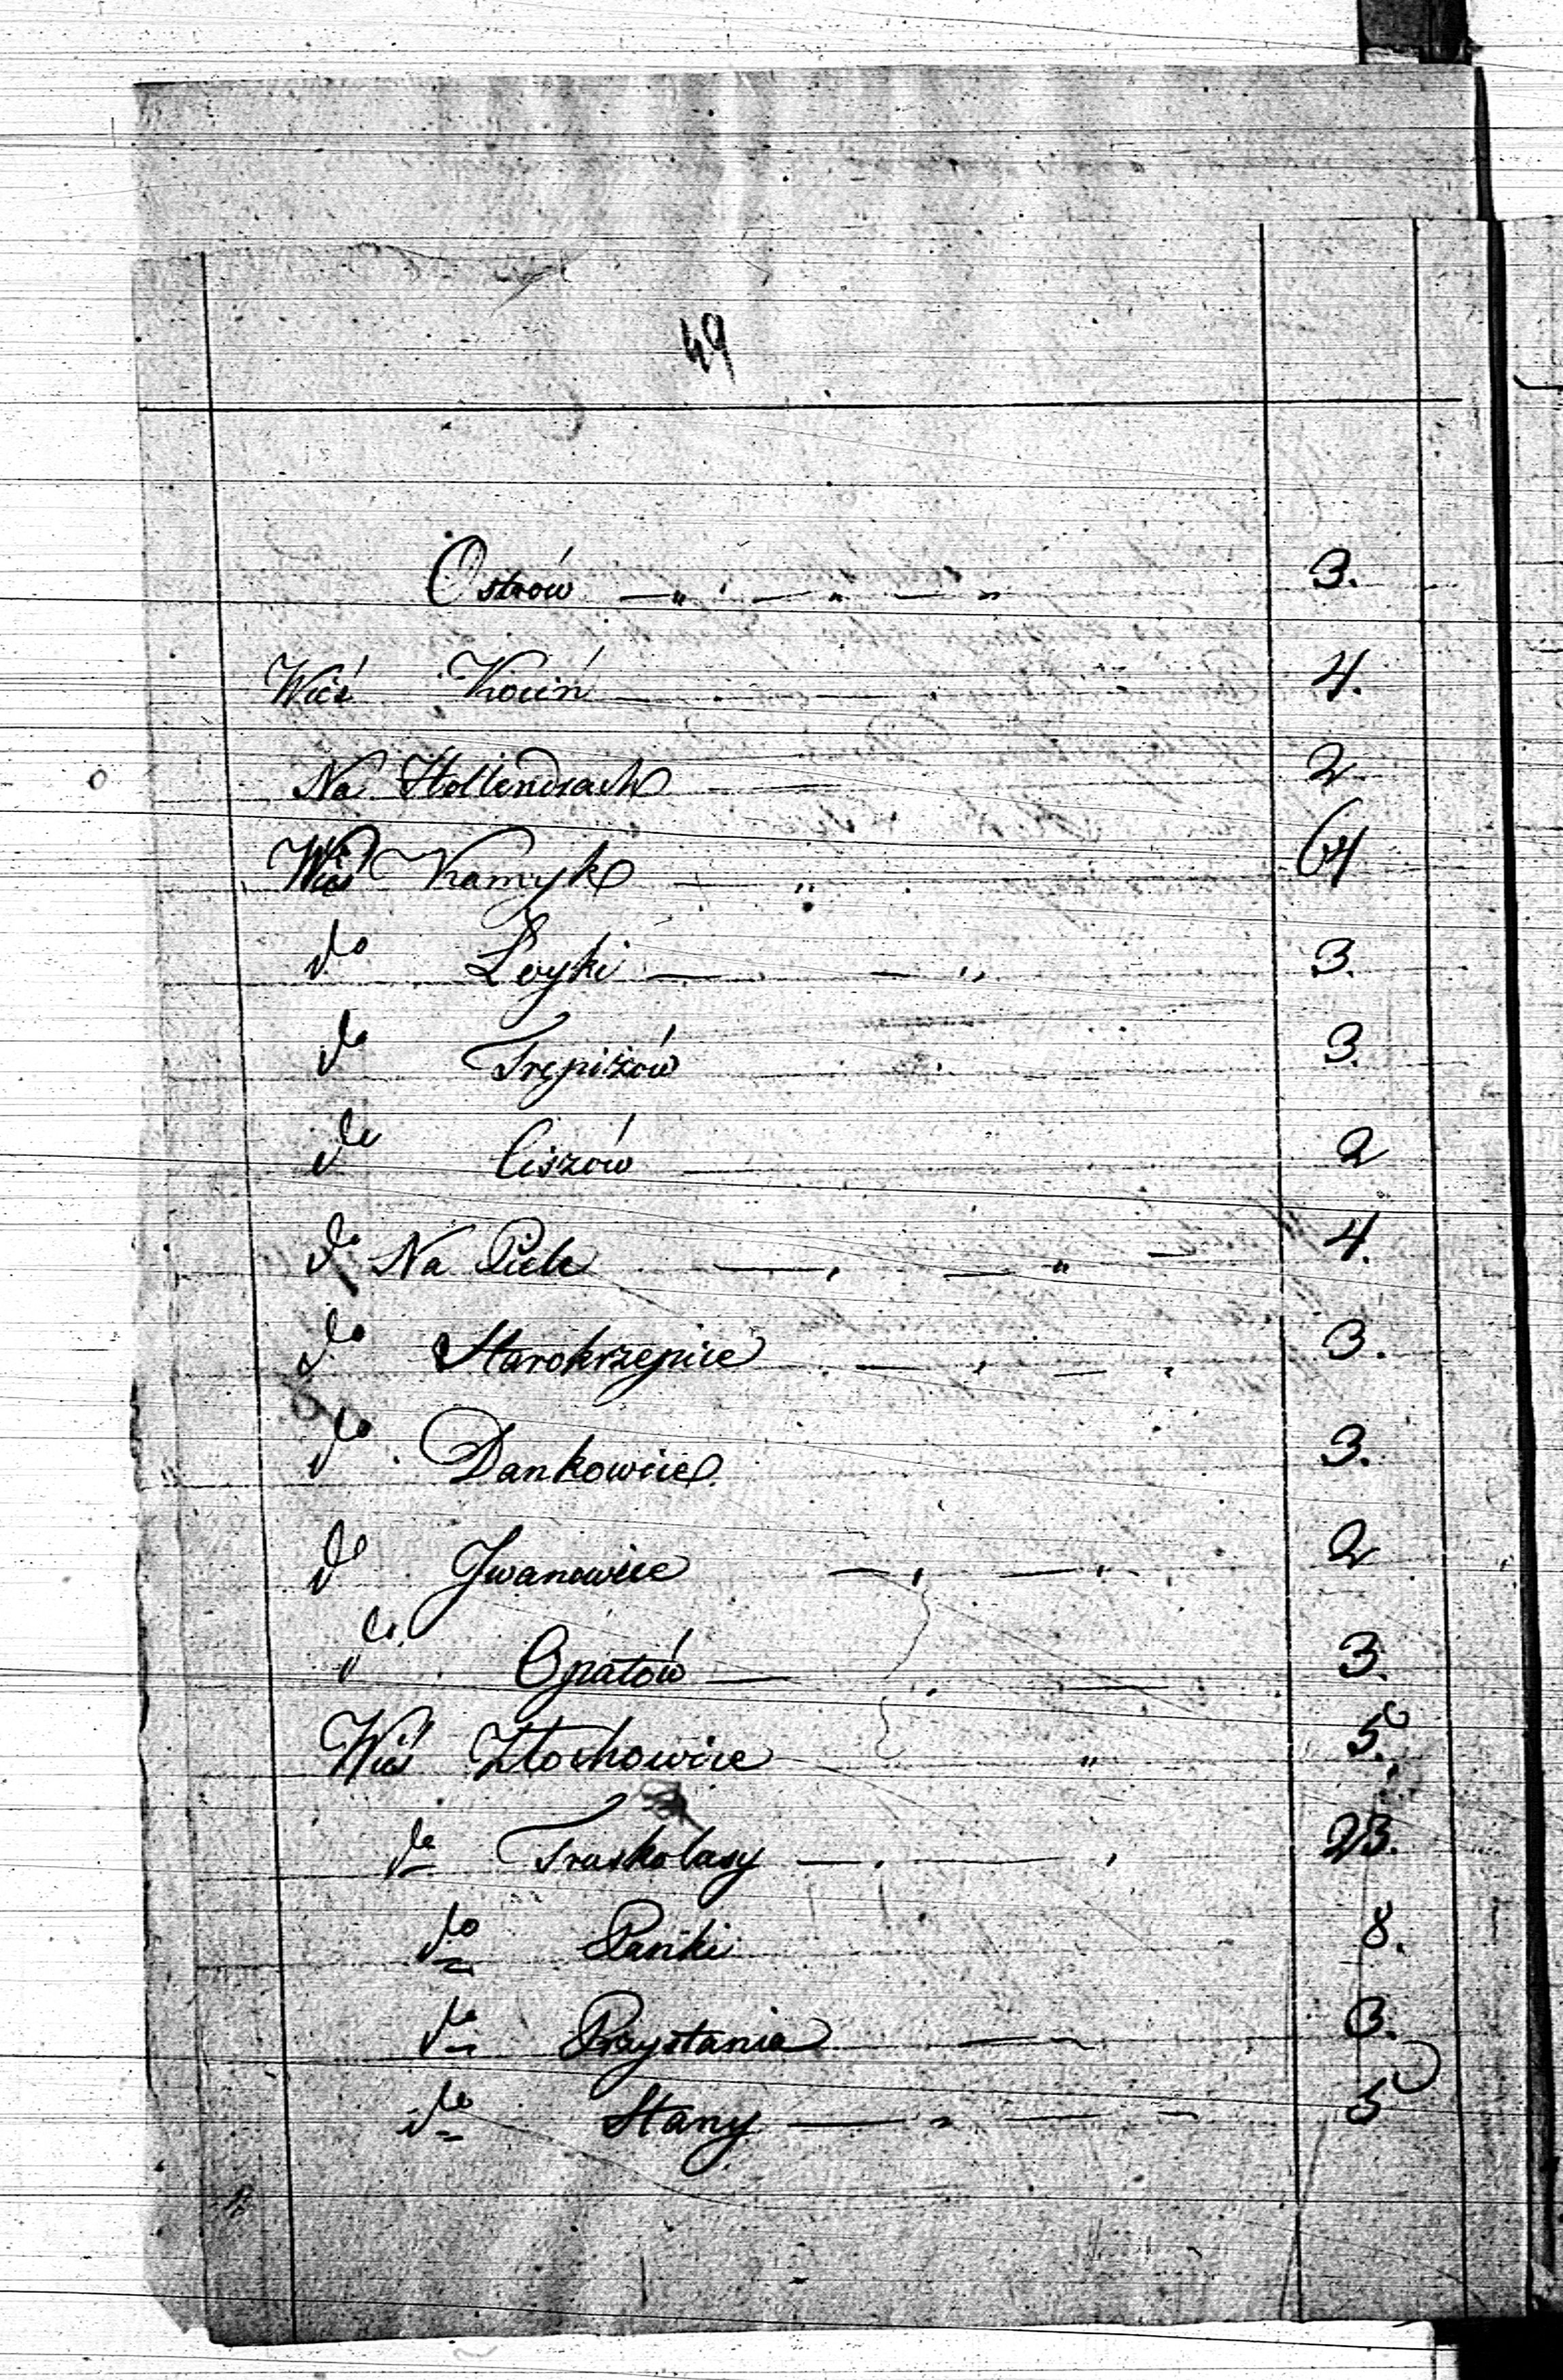 49
Ostrów — " — " — " 3.
Wieś Kocin — . — . 4.
Na Hollendrach — 2
Wieś Kamyk — " 64
do Łoyki — . — " 3.
do Trępiżów . 3.
do Ciszów — 2
do Na Piele — , — " — 4.
do Starokrzepice . — , — , 3.
do Dankowice. 3.
do Jwanowice — , — , 2
do Opatów — . — 3.
Wieś Złochowice " 5.
do Truskolasy — . — , 23.
do Pańki 8.
do Przystania — 3.
do Stany — " — 5